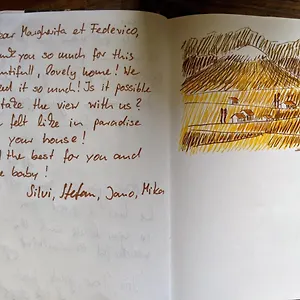 ear Margherita et Federico,
ank you so much for this
autifull, lovely home! We
ed it so much! Is it possible
take the view with us?
felt like in paradise
your house!
the best for you and
e baby!
Silvi, Stefan, Jano, Mika